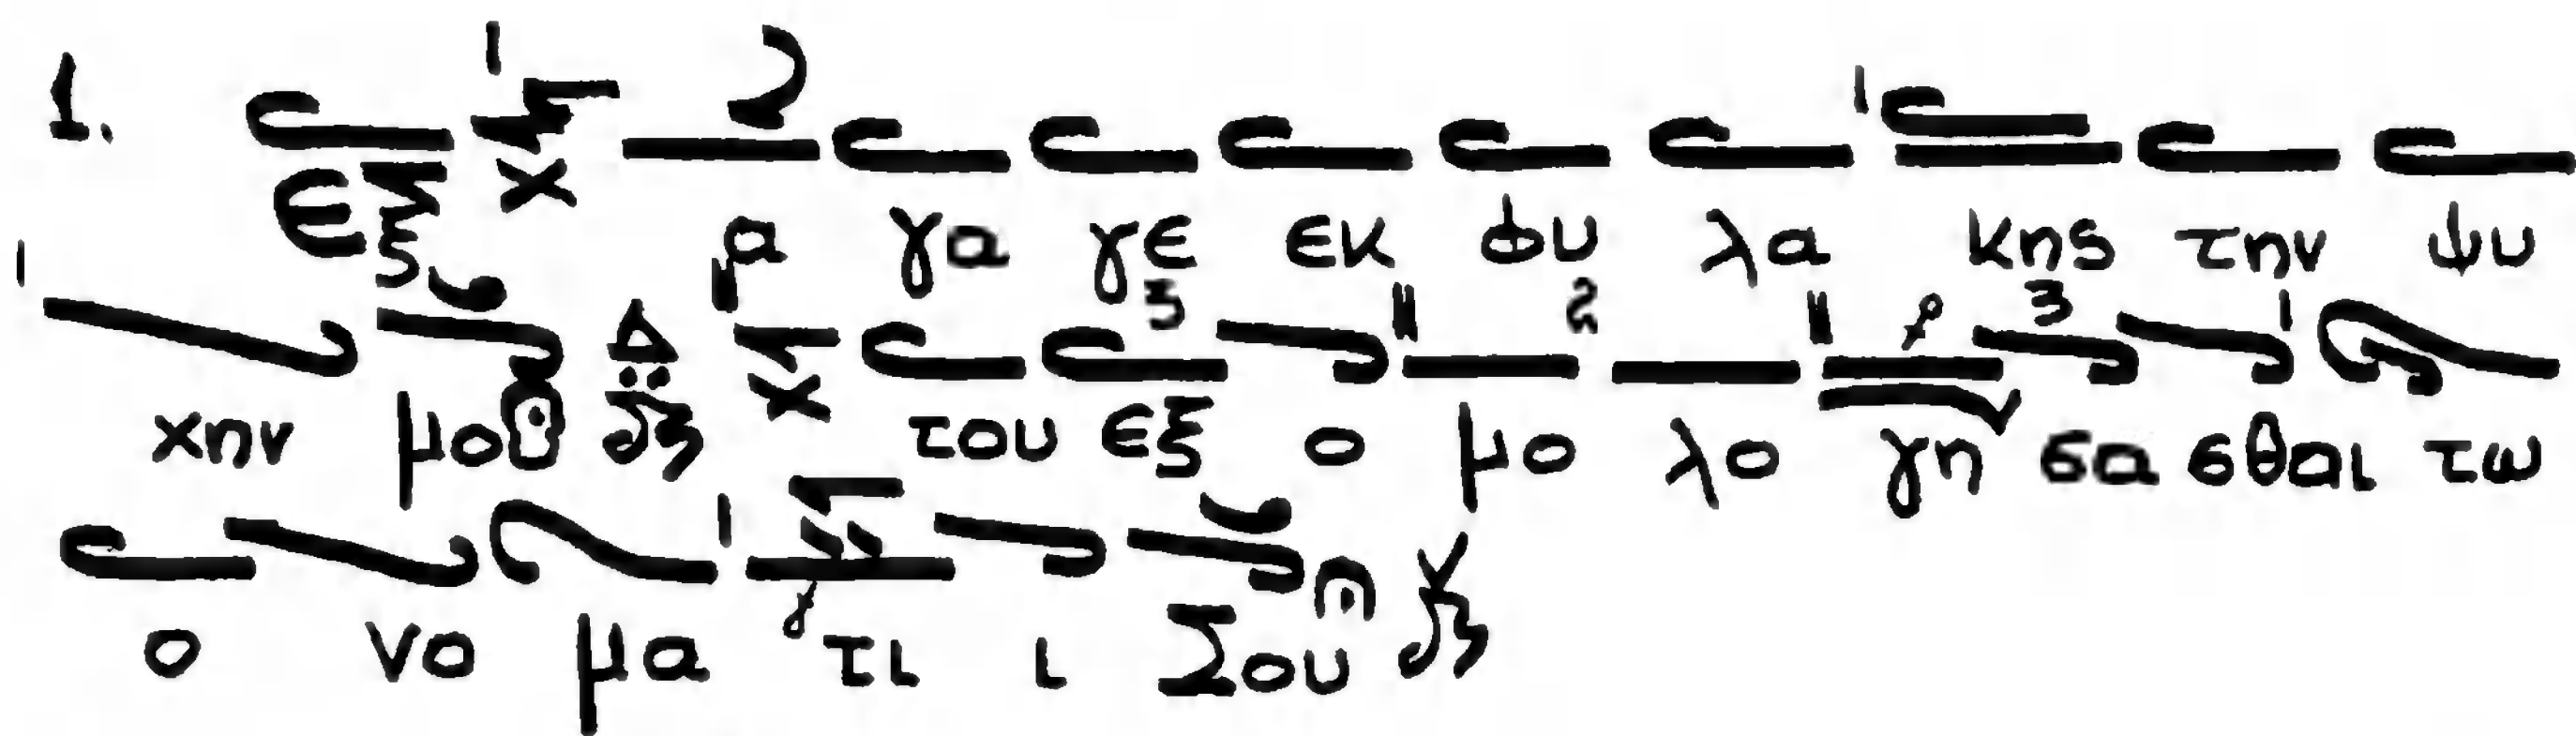 1. Εξ α γα γε εκ φυ λα κης την ψυ
χην μου Δ του εξ ο μο λο γη σα σθαι τω
ο νο μα τι ι Σου